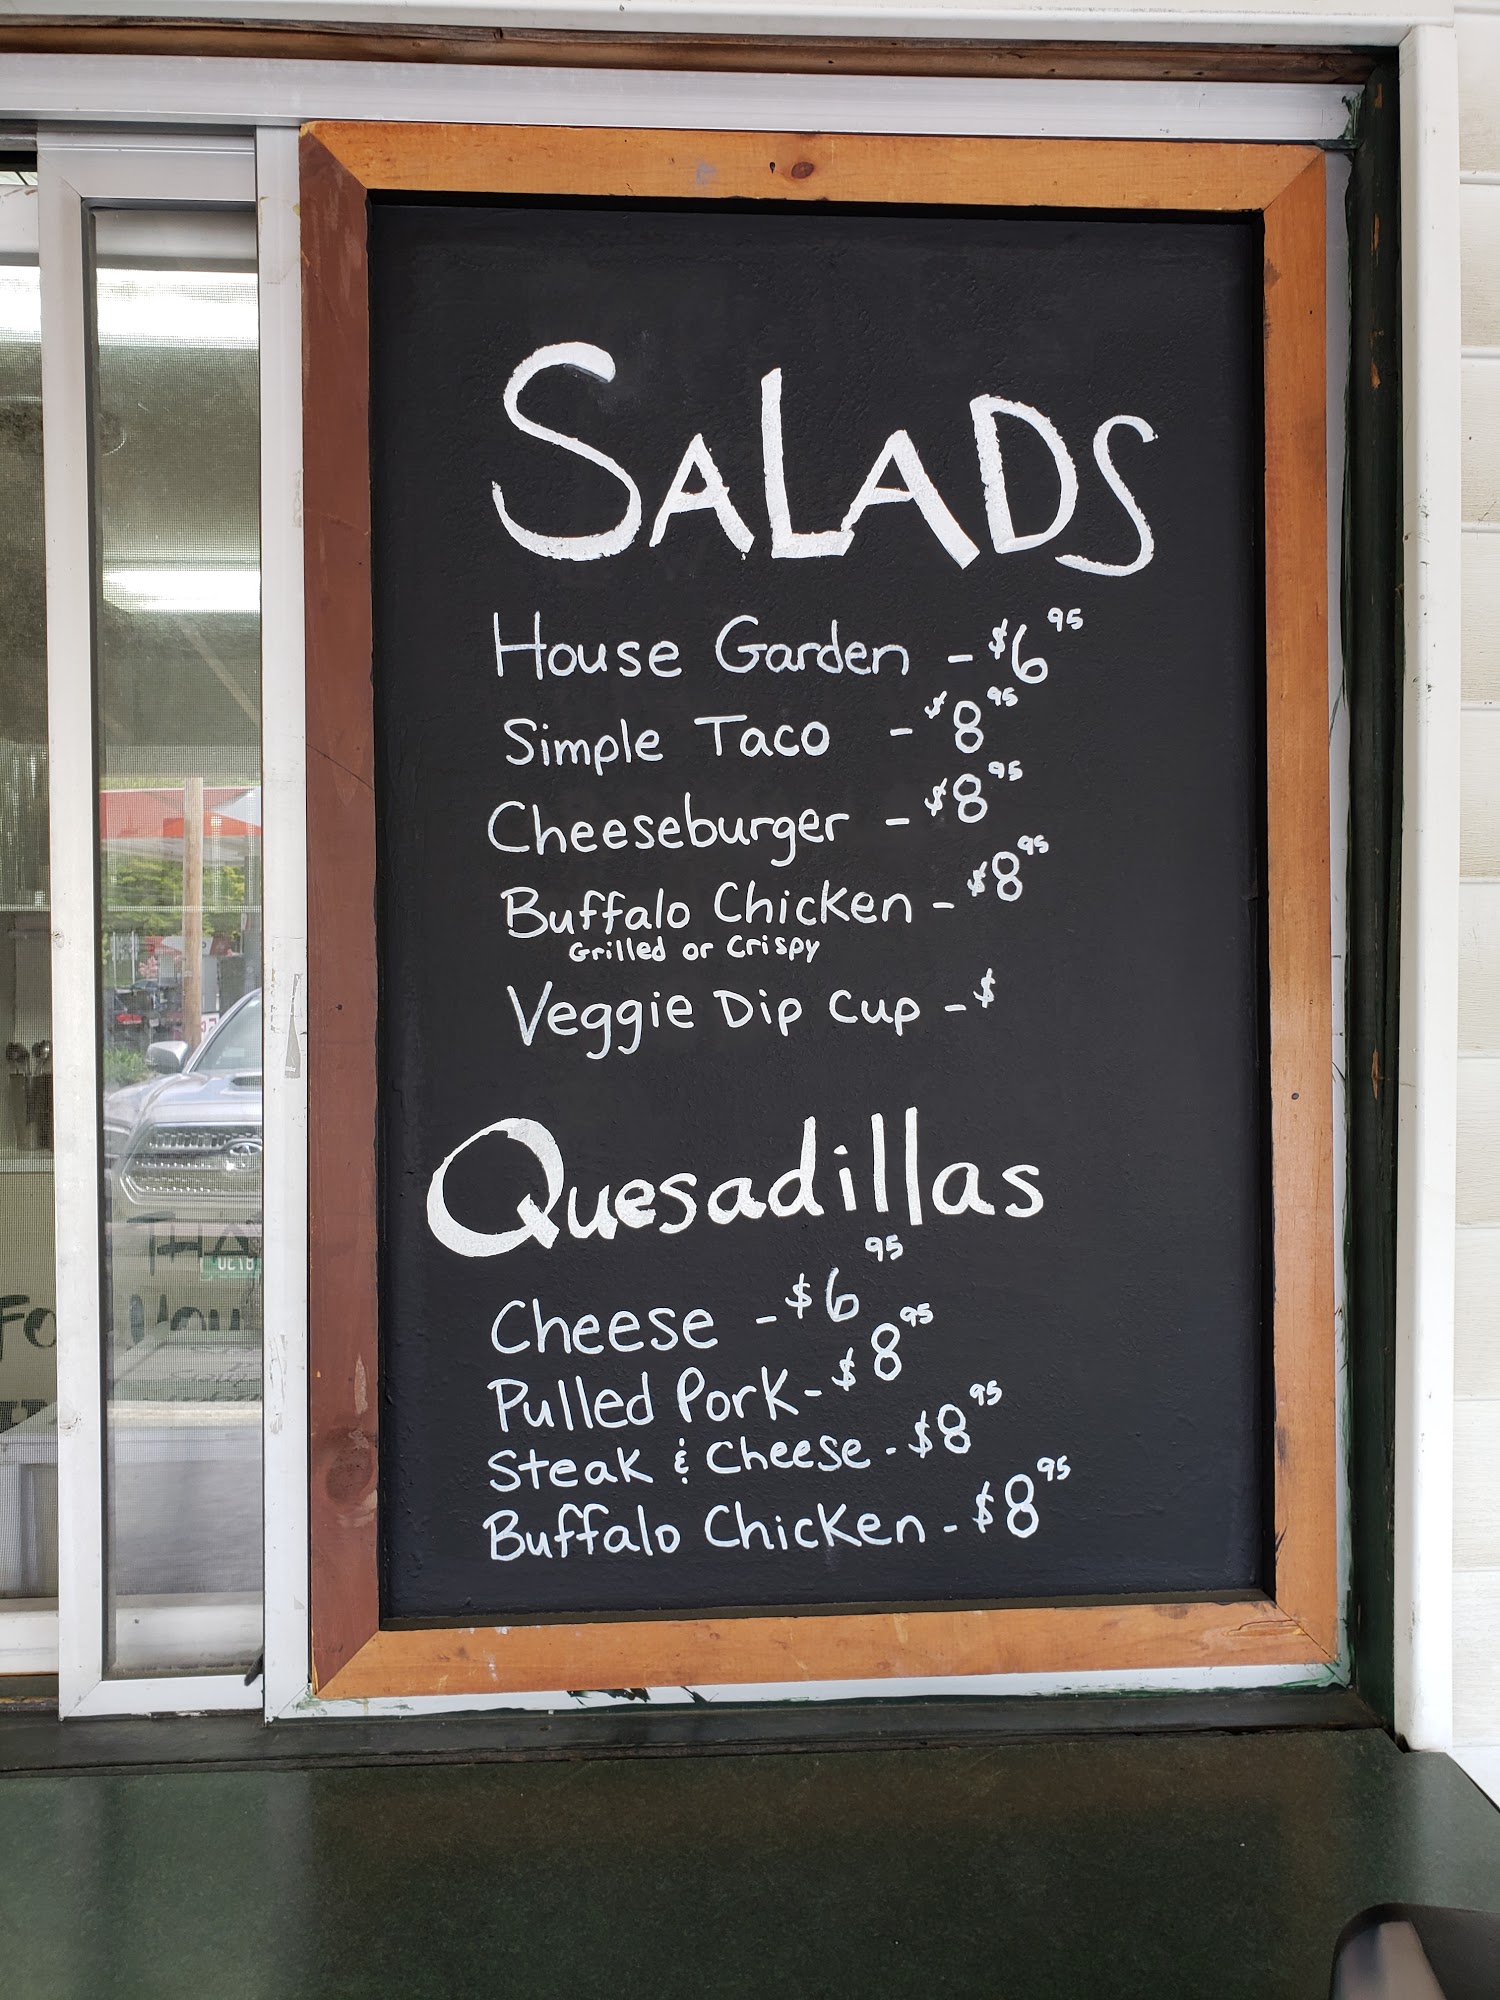 SALADS
House Garden - $6 95
Simple Taco - $8 95
Cheeseburger - $8 95
Buffalo Chicken - $8 95
Grilled or Crispy
Veggie Dip Cup - $
Quesadillas
Cheese - $6 95
Pulled Pork - $8 95
Steak & Cheese - $8 95
Buffalo Chicken - $8 95